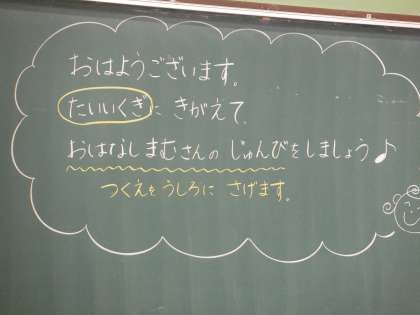 おはようございます。
たいいくぎに きがえて、
おはなしまむさんの じゅんびをしましょう♪
つくえを うしろに さげます。